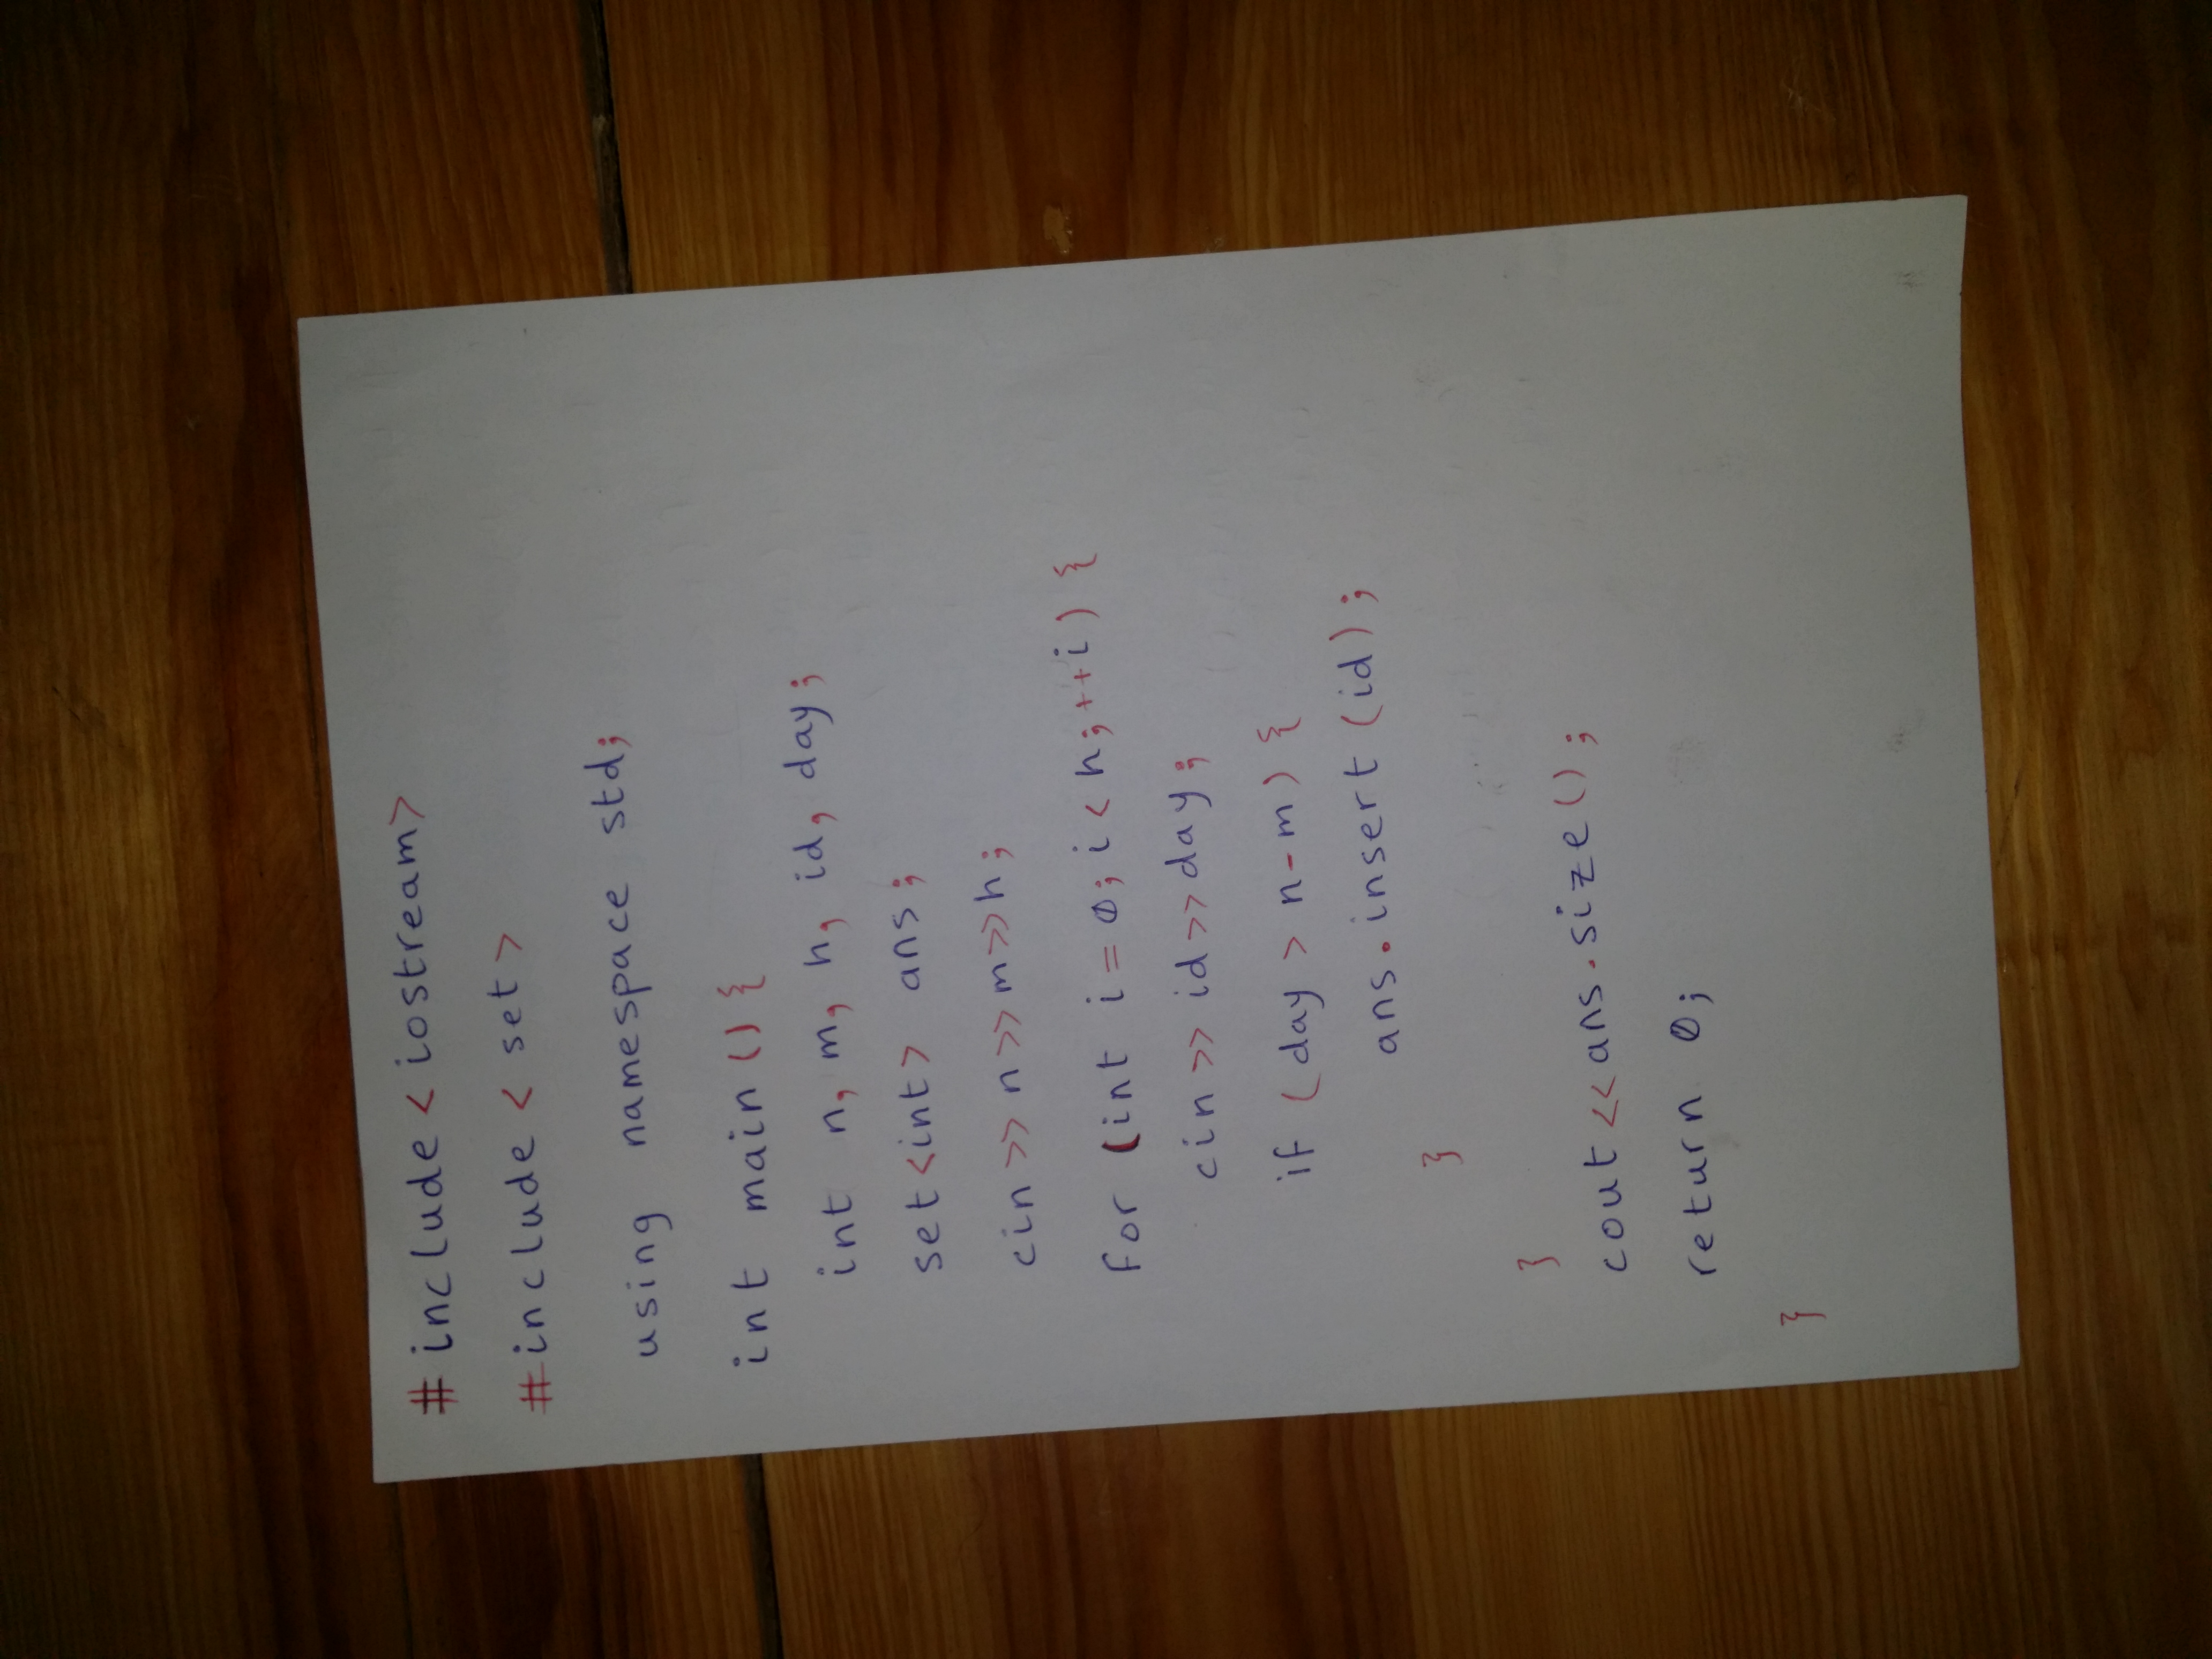 #include<iostream>
#include< set >
using namespace std;
int main(){
int n, m, h, id, day;
set<int> ans;
cin>>n>>m>>h;
for (int i=0;i<h;++i) {
cin>>id>>day;
if (day > n-m) {
ans.insert(id);
}
}
cout<<ans.size();
return 0;
}